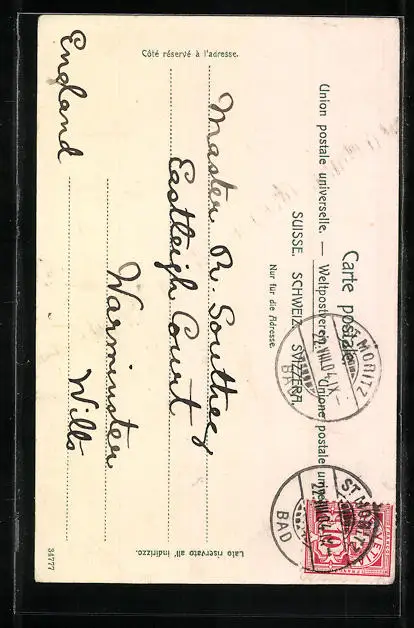 Carte postale.
Union postale universelle. — Weltpostverein. — Unione postale
SUISSE. SCHWEIZ. SVIZZERA.
Nur für die Adresse.
Côté réservé à l'adresse.
Lato riservato all' indirizzo.
ST MORITZ
BAD
ST MORITZ
BAD
10
Master R. Southey
Eastleigh Court
Warminster
Wilts
England
34777